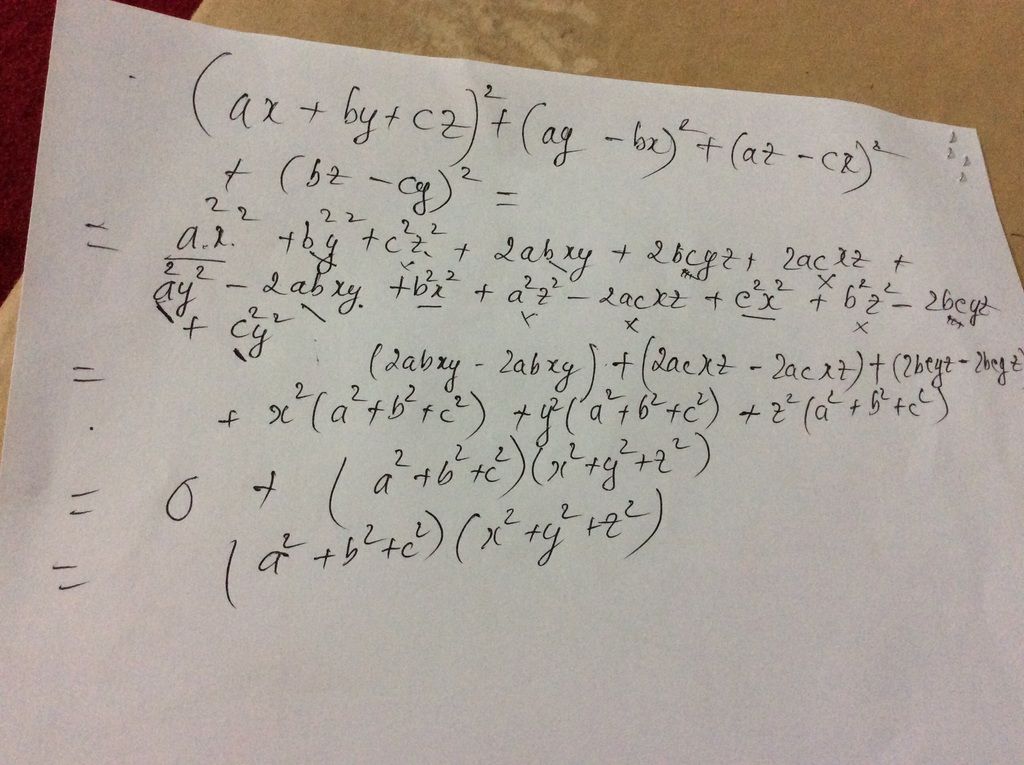 (ax + by + cz)² + (ay - bx)² + (az - cx)²
+ (bz - cy)² =
= a²x² + b²y² + c²z² + 2abxy + 2bcyz + 2acxz +
a²y² - 2abxy + b²x² + a²z² - 2acxz + c²x² + b²z² - 2bcyz
+ c²y²
= (2abxy - 2abxy) + (2acxz - 2acxz) + (2bcyz - 2bcyz)
+ x²(a² + b² + c²) + y²(a² + b² + c²) + z²(a² + b² + c²)
= 0 + (a² + b² + c²)(x² + y² + z²)
= (a² + b² + c²)(x² + y² + z²)